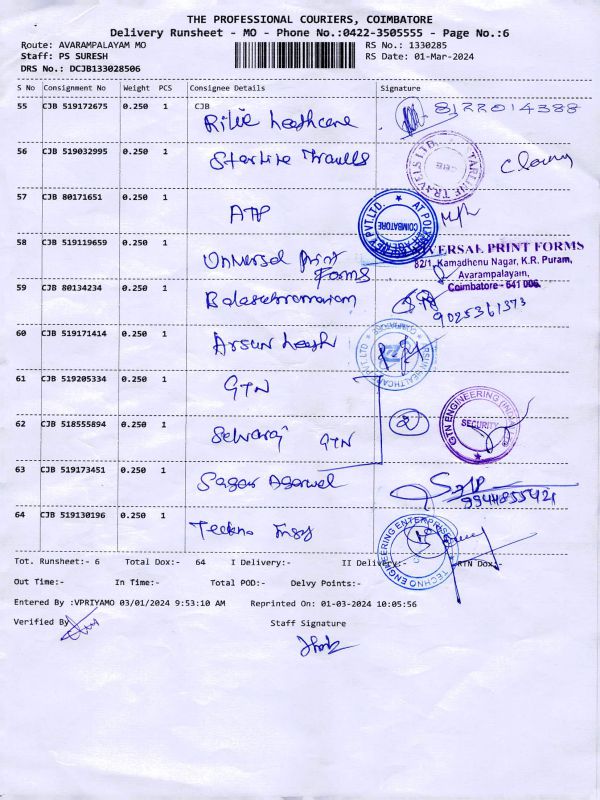 THE PROFESSIONAL COURIERS, COIMBATORE
Delivery Runsheet - MO - Phone No.:0422-3505555 - Page No.:6
Route: AVARAMPALAYAM MO RS No.: 1330285
Staff: PS SURESH RS Date: 01-Mar-2024
DRS No.: DCJB133028506
S No Consignment No Weight PCS Consignee Details Signature
55 CJB 519172675 0.250 1 CJB
8122014388
56 CJB 519032995 0.250 1 Starline Travells
57 CJB 80171651 0.250 1 ATP
COIMBATORE
58 CJB 519119659 0.250 1 Universal print Forms
UNIVERSAL PRINT FORMS
82/1, Kamadhenu Nagar, K.R. Puram,
Avarampalayam,
Coimbatore - 641 006.
59 CJB 80134234 0.250 1 Balasubramaniam
9025361373
60 CJB 519171414 0.250 1 Arsun health
61 CJB 519205334 0.250 1 GTN
62 CJB 518555894 0.250 1 Selvaraj GTN
2
GTN ENGINEERING
SECURITY
63 CJB 519173451 0.250 1 Sagar Agarwal
9944855421
64 CJB 519130196 0.250 1 Techno Engg
TECHNO ENGINEERING ENTERPRISE
Tot. Runsheet:- 6 Total Dox:- 64 I Delivery:- II Delivery:- RTN Dox:-
Out Time:- In Time:- Total POD:- Delvy Points:-
Entered By :VPRIYAMO 03/01/2024 9:53:10 AM Reprinted On: 01-03-2024 10:05:56
Verified By Staff Signature